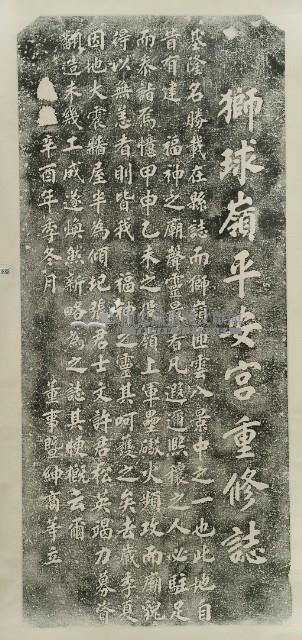 獅球嶺平安宮重修誌
基隆名勝載在縣誌而獅嶺匝雲八景中之一也此地自
昔有建　福神之廟聲靈最著凡遐邇熙攘之人必駐足
而參詣焉憶甲申乙未之役嶺上軍壘礮火頻攻而廟貌
得以無恙者則皆我　福神之靈其呵護之矣去歲季夏
因地大震牆屋半為傾圮張君士文許君松英竭力募眷
翻造未幾工成遂煥然新略為之誌其梗概云爾
辛酉年季冬月　董事暨紳商等立